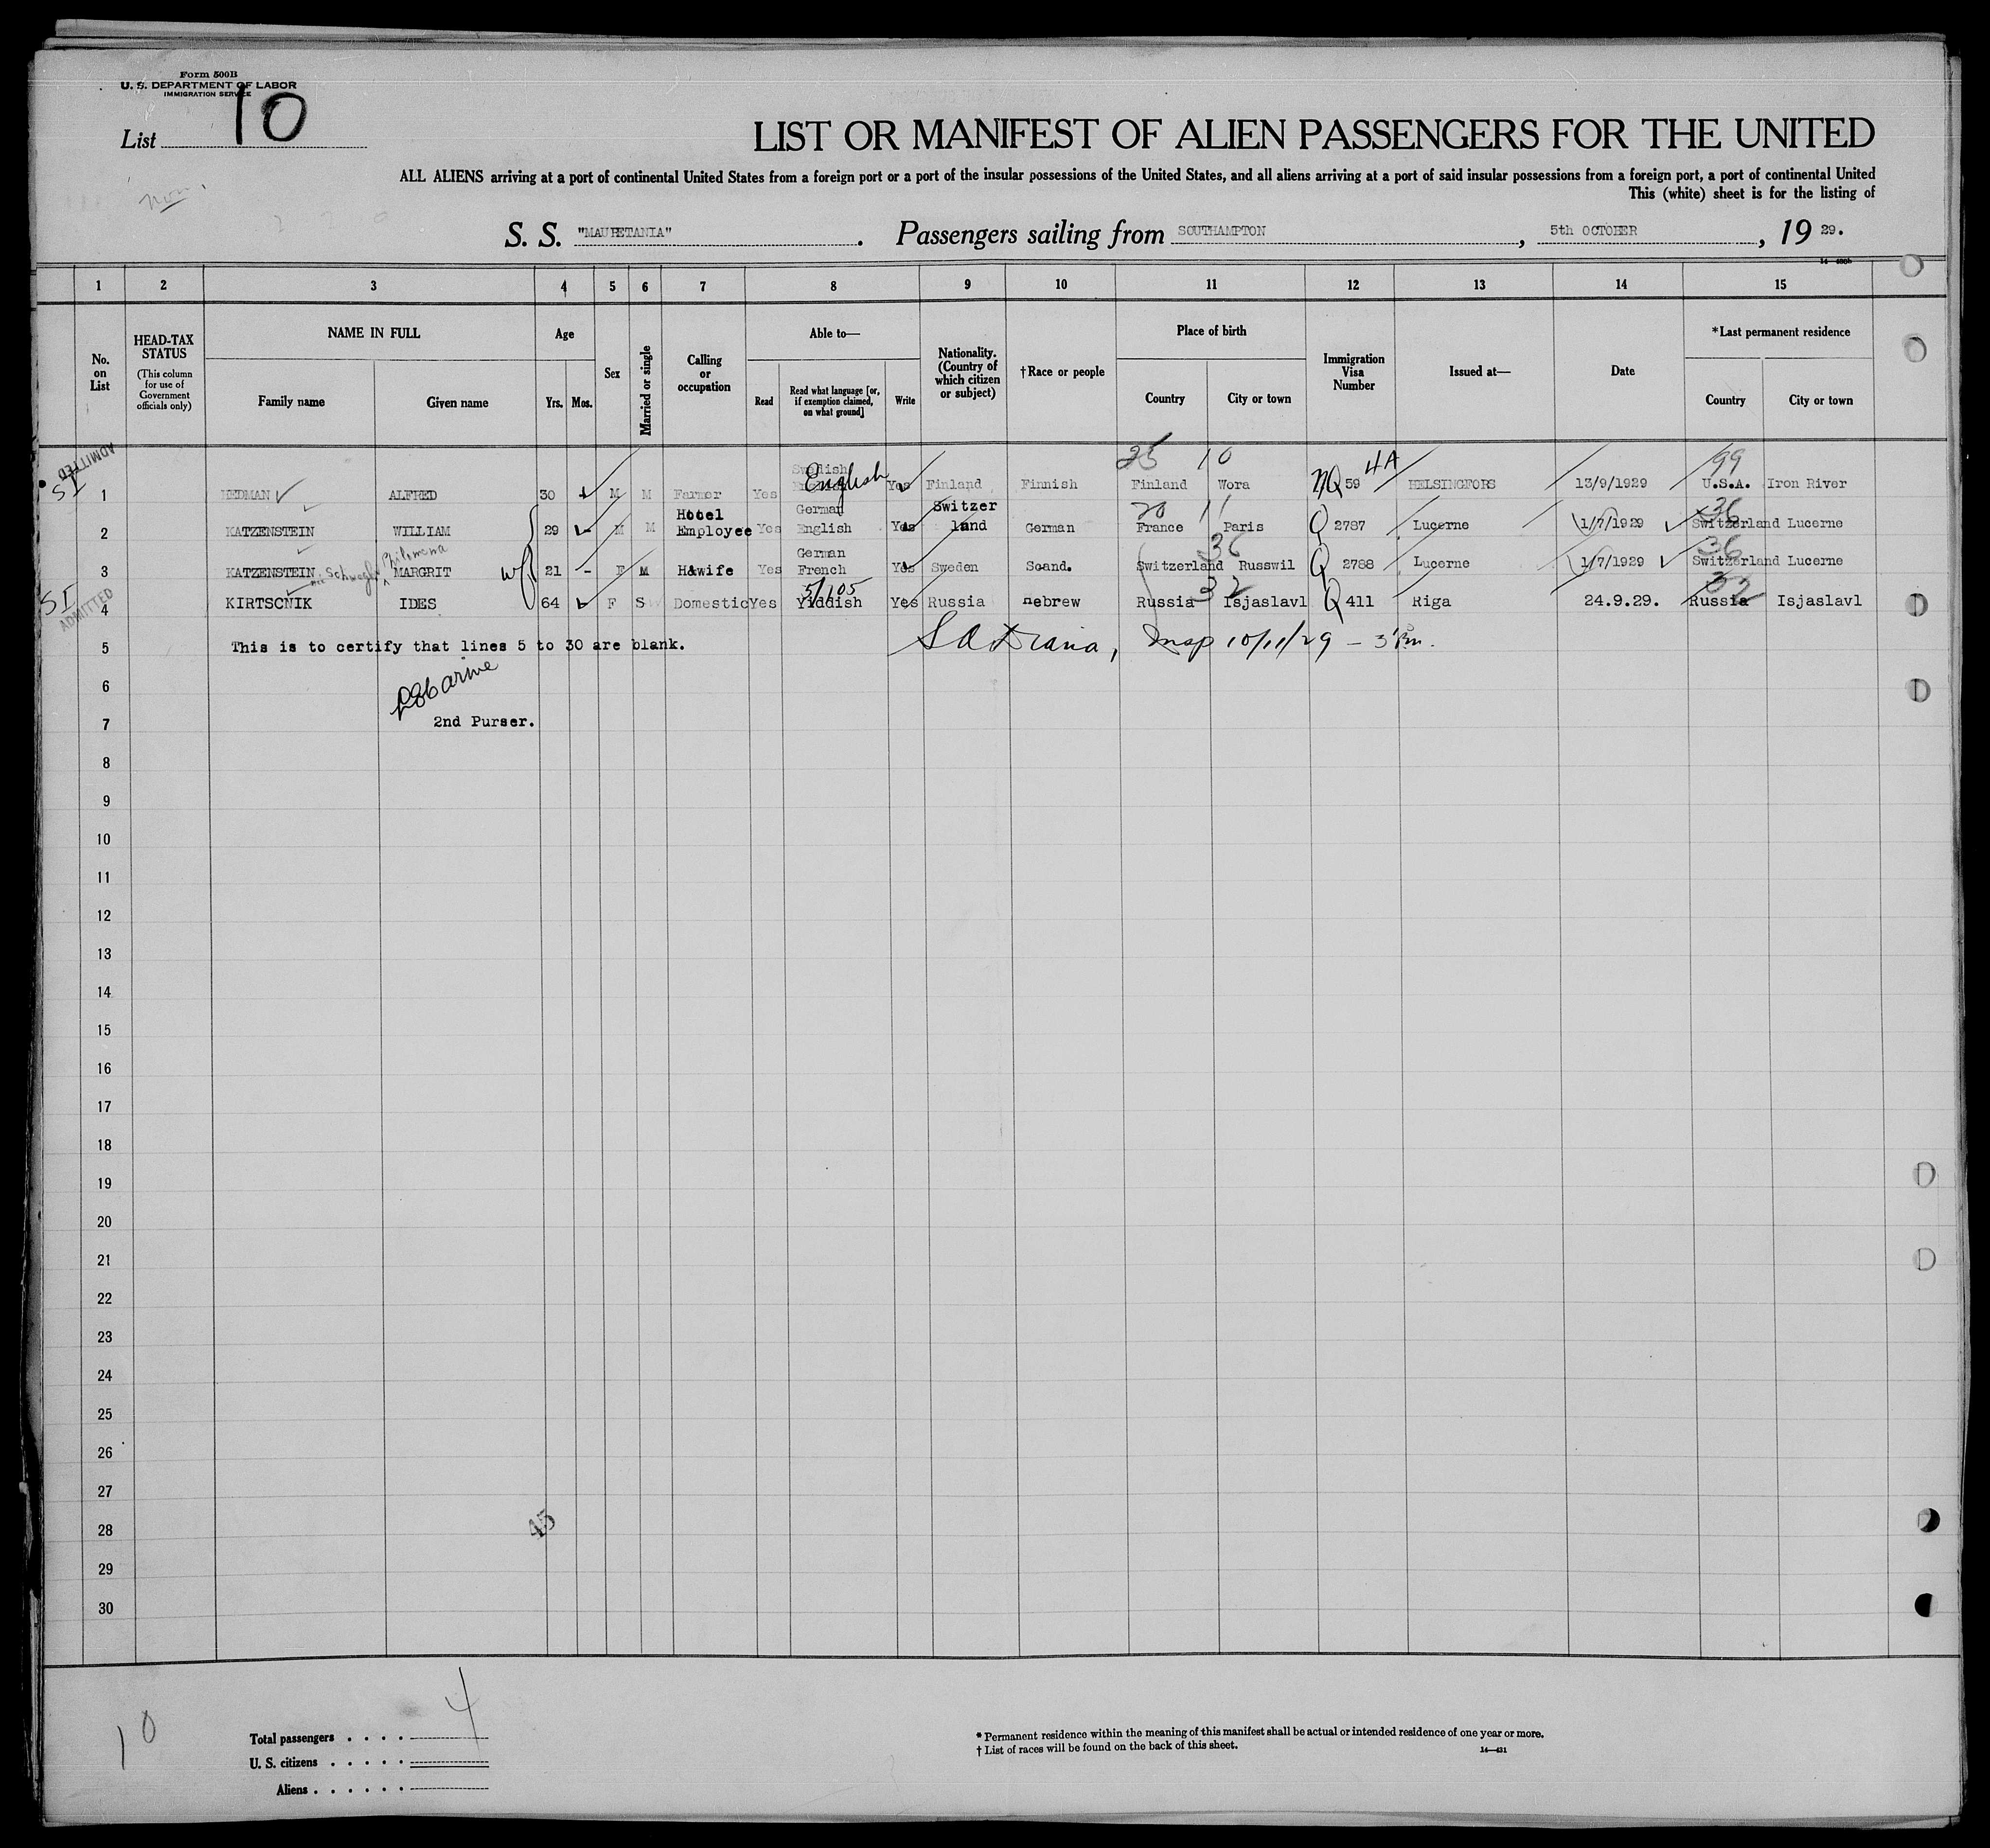 Form 500B
U. S. DEPARTMENT OF LABOR
IMMIGRATION SERVICE
List 10
LIST OR MANIFEST OF ALIEN PASSENGERS FOR THE UNITED
ALL ALIENS arriving at a port of continental United States from a foreign port or a port of the insular possessions of the United States, and all aliens arriving at a port of said insular possessions from a foreign port, a port of continental United
This (white) sheet is for the listing of
S. S. "MAURETANIA". Passengers sailing from SOUTHAMPTON, 5th OCTOBER, 19 29.
1 2 3 4 5 6 7 8 9 10 11 12 13 14 15
No. on List
HEAD-TAX STATUS (This column for use of Government officials only)
NAME IN FULL
Family name Given name
Age
Yrs. Mos.
Sex
Married or single
Calling or occupation
Able to—
Read
Read what language [or, if exemption claimed, on what ground]
Write
Nationality. (Country of which citizen or subject)
†Race or people
Place of birth
Country City or town
Immigration Visa Number
Issued at—
Date
*Last permanent residence
Country City or town
ADMITTED
SI
25 10 4A 99
Swedish
1 HEDMAN ALFRED 30 M M Farmer Yes English Yes Finland Finnish Finland Wora NQ 59 HELSINGFORS 13/9/1929 U.S.A. Iron River
20 11 36
2 KATZENSTEIN WILLIAM 29 M M Hotel Employee Yes German English Yes Switzer land German France Paris Q 2787 Lucerne 1/7/1929 Switzerland Lucerne
nee Philomena 36 36
3 KATZENSTEIN MARGRIT wf 21 - F M H&wife Yes German French Yes Sweden Scand. Switzerland Russwil Q 2788 Lucerne 1/7/1929 Switzerland Lucerne
SI
ADMITTED
5/105 32 32
4 KIRTSCNIK IDES 64 F S Domestic Yes Yiddish Yes Russia Hebrew Russia Isjaslavl Q 411 Riga 24.9.29. Russia Isjaslavl
5 This is to certify that lines 5 to 30 are blank.
Insp 10/11/29 -
6
7 2nd Purser.
8
9
10
11
12
13
14
15
16
17
18
19
20
21
22
23
24
25
26
27
28 45
29
30
10
Total passengers . . . . 4
U. S. citizens . . . . .
Aliens . . . . . .
* Permanent residence within the meaning of this manifest shall be actual or intended residence of one year or more.
† List of races will be found on the back of this sheet.